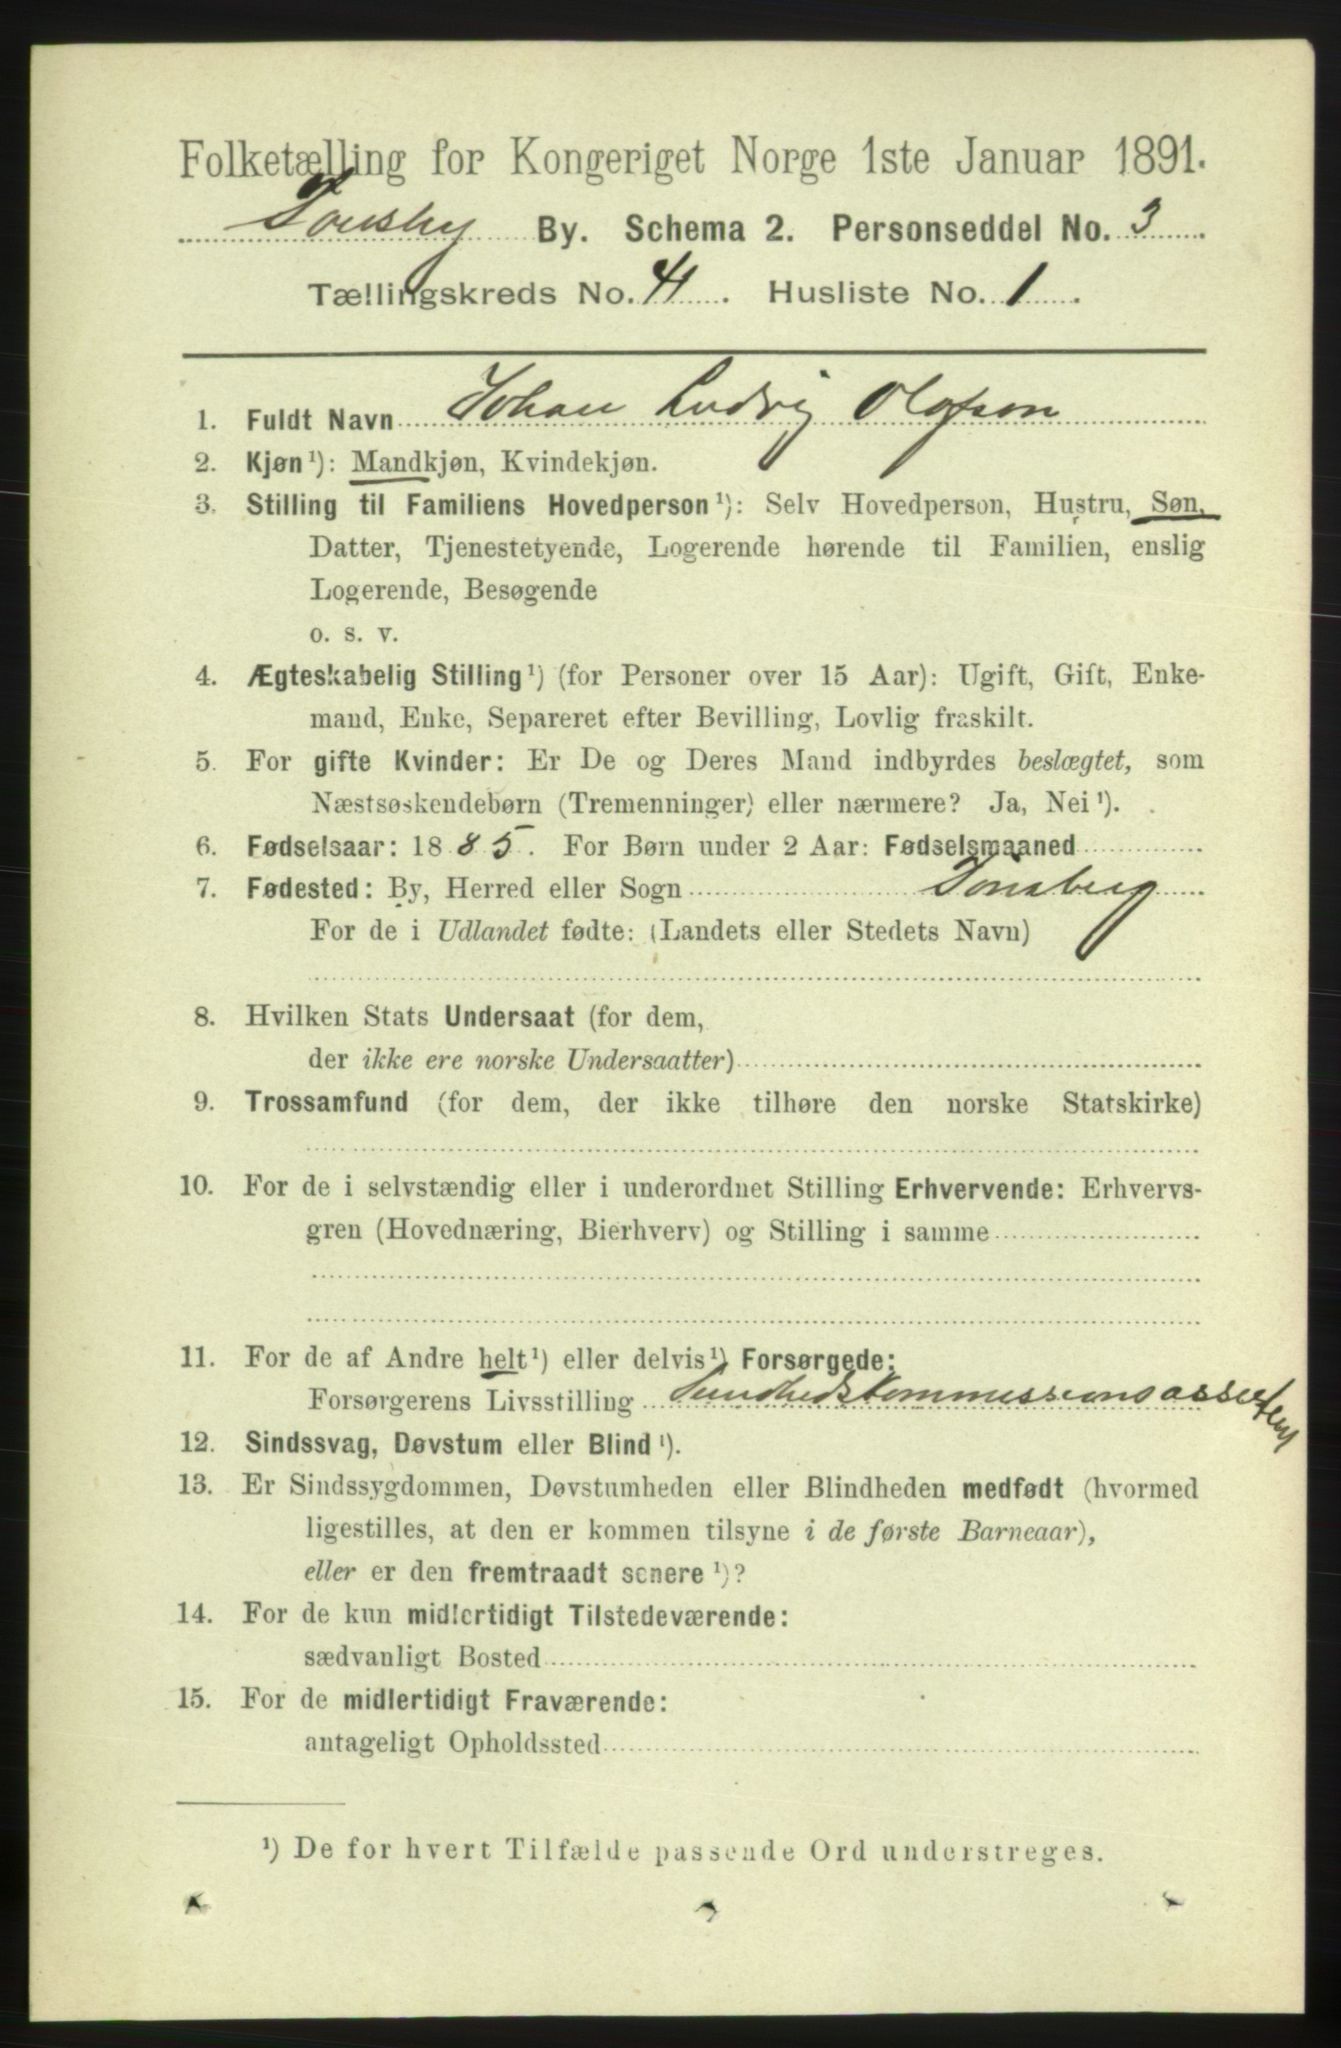 Folketælling for Kongeriget Norge 1ste Januar 1891.
By. Schema 2. Personseddel No. 3
Tællingskreds No. 41. Husliste No. 1.
1. Fuldt Navn Johan Ludvig Olafson
2. Kjøn¹): Mandkjøn, Kvindekjøn.
3. Stilling til Familiens Hovedperson¹): Selv Hovedperson, Hustru, Søn,
Datter, Tjenestetyende, Logerende hørende til Familien, enslig
Logerende, Besøgende
o. s. v.
4. Ægteskabelig Stilling¹) (for Personer over 15 Aar): Ugift, Gift, Enke-
mand, Enke, Separeret efter Bevilling, Lovlig fraskilt.
5. For gifte Kvinder: Er De og Deres Mand indbyrdes beslægtet, som
Næstsøskendebørn (Tremenninger) eller nærmere? Ja, Nei¹).
6. Fødselsaar: 1885. For Børn under 2 Aar: Fødselsmaaned
7. Fødested: By, Herred eller Sogn Tønsberg
For de i Udlandet fødte: (Landets eller Stedets Navn)
8. Hvilken Stats Undersaat (for dem,
der ikke ere norske Undersaatter)
9. Trossamfund (for dem, der ikke tilhøre den norske Statskirke)
10. For de i selvstændig eller i underordnet Stilling Erhvervende: Erhvervs-
gren (Hovednæring, Bierhverv) og Stilling i samme
11. For de af Andre helt¹) eller delvis¹) Forsørgede:
Forsørgerens Livsstilling
12. Sindssvag, Døvstum eller Blind¹).
13. Er Sindssygdommen, Døvstumheden eller Blindheden medfødt (hvormed
ligestilles, at den er kommen tilsyne i de første Barneaar),
eller er den fremtraadt senere¹)?
14. For de kun midlertidigt Tilstedeværende:
sædvanligt Bosted
15. For de midlertidigt Fraværende:
antageligt Opholdssted
¹) De for hvert Tilfælde passende Ord understreges.